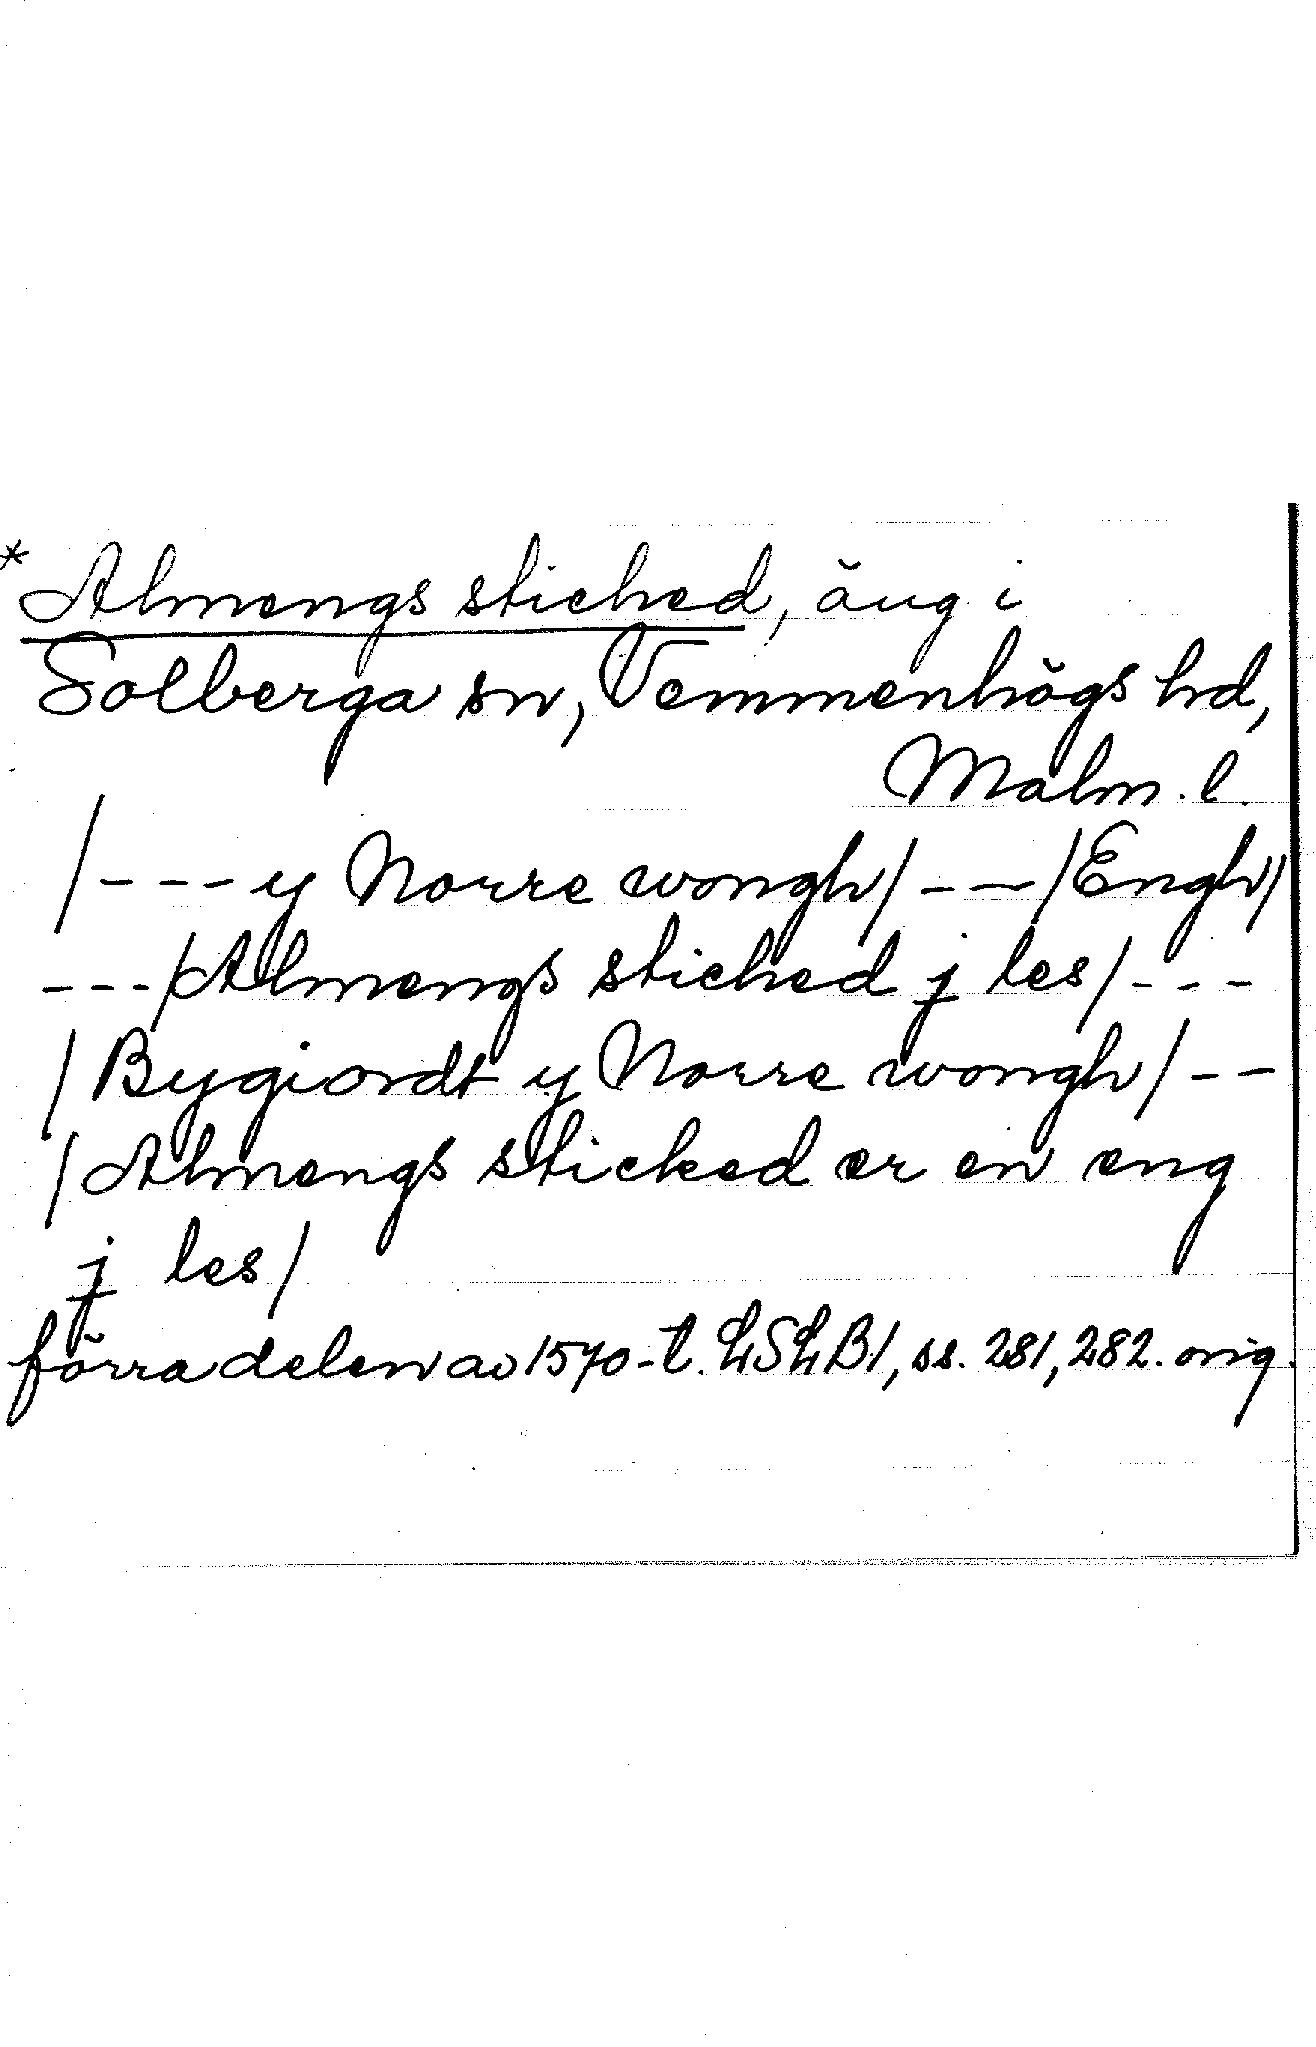 *Almengs stiched, äng i
Solberga sn, Vemmenhögs hd,
Malm. l.
/---y Norre wongh/---/Engh/
---/Almengs stiched j les/---
/Bygiordt y Norre wongh/--
/Almengs sticked er en eng
j les/
förra delen av 1570-t. LSLB1, ss. 281, 282. orig.